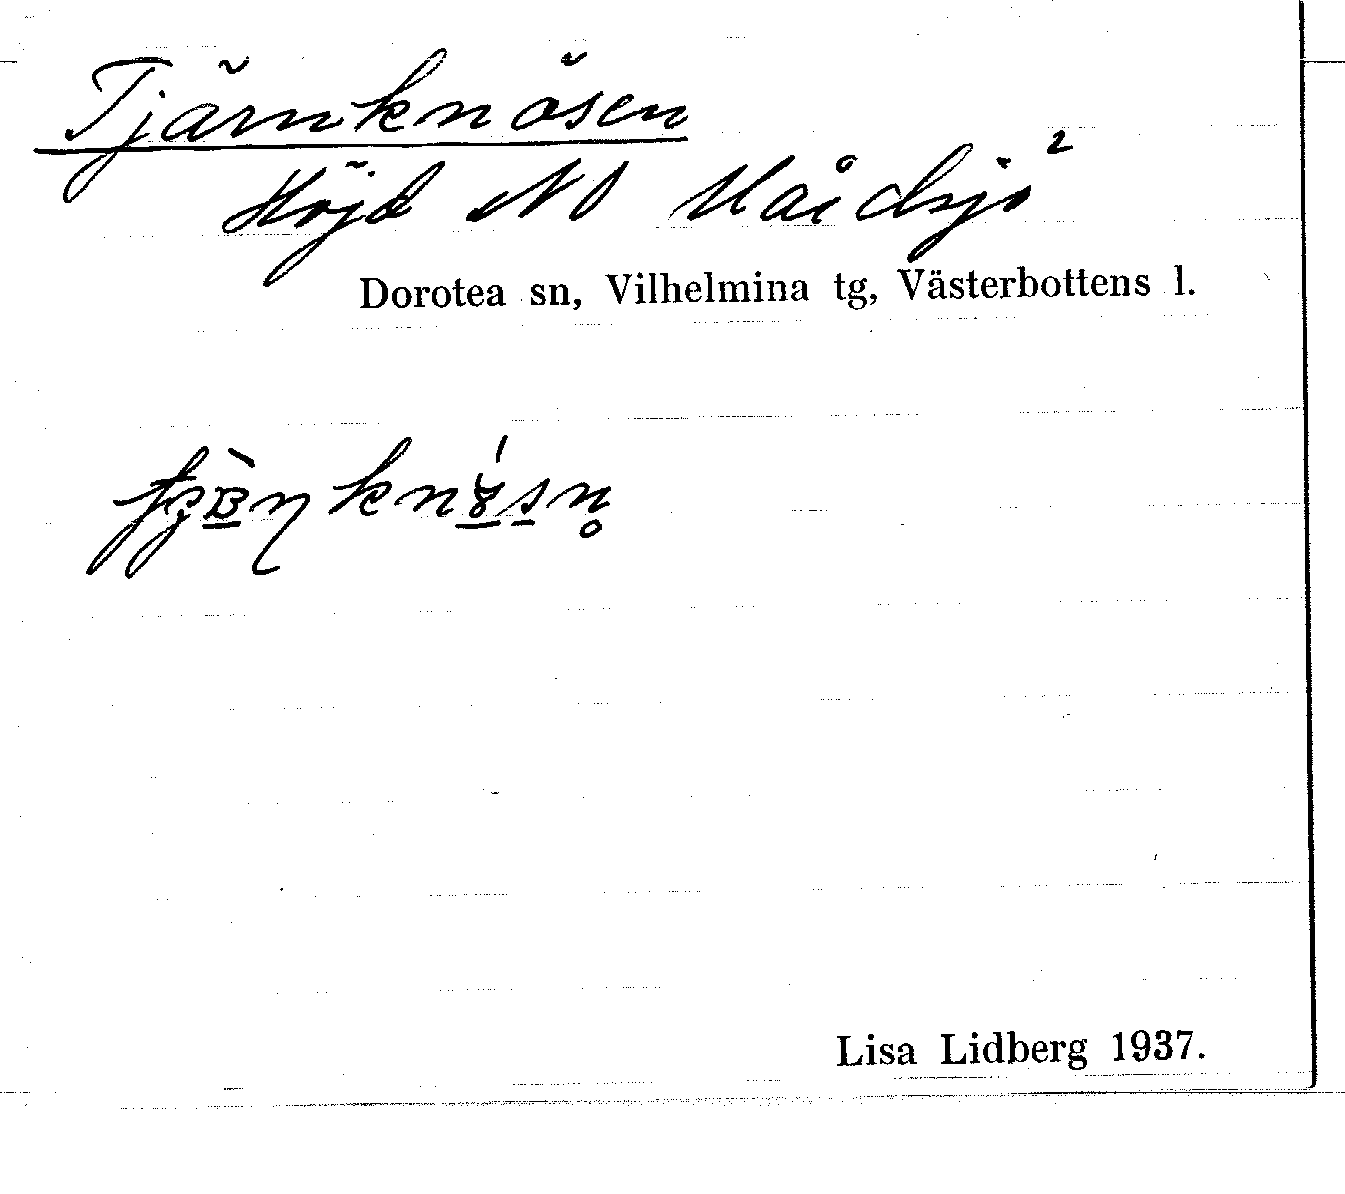 Tjärnknösen
Höjd NO Måidsjö²
Dorotea sn, Vilhelmina tg, Västerbottens l.
Lisa Lidberg 1937.